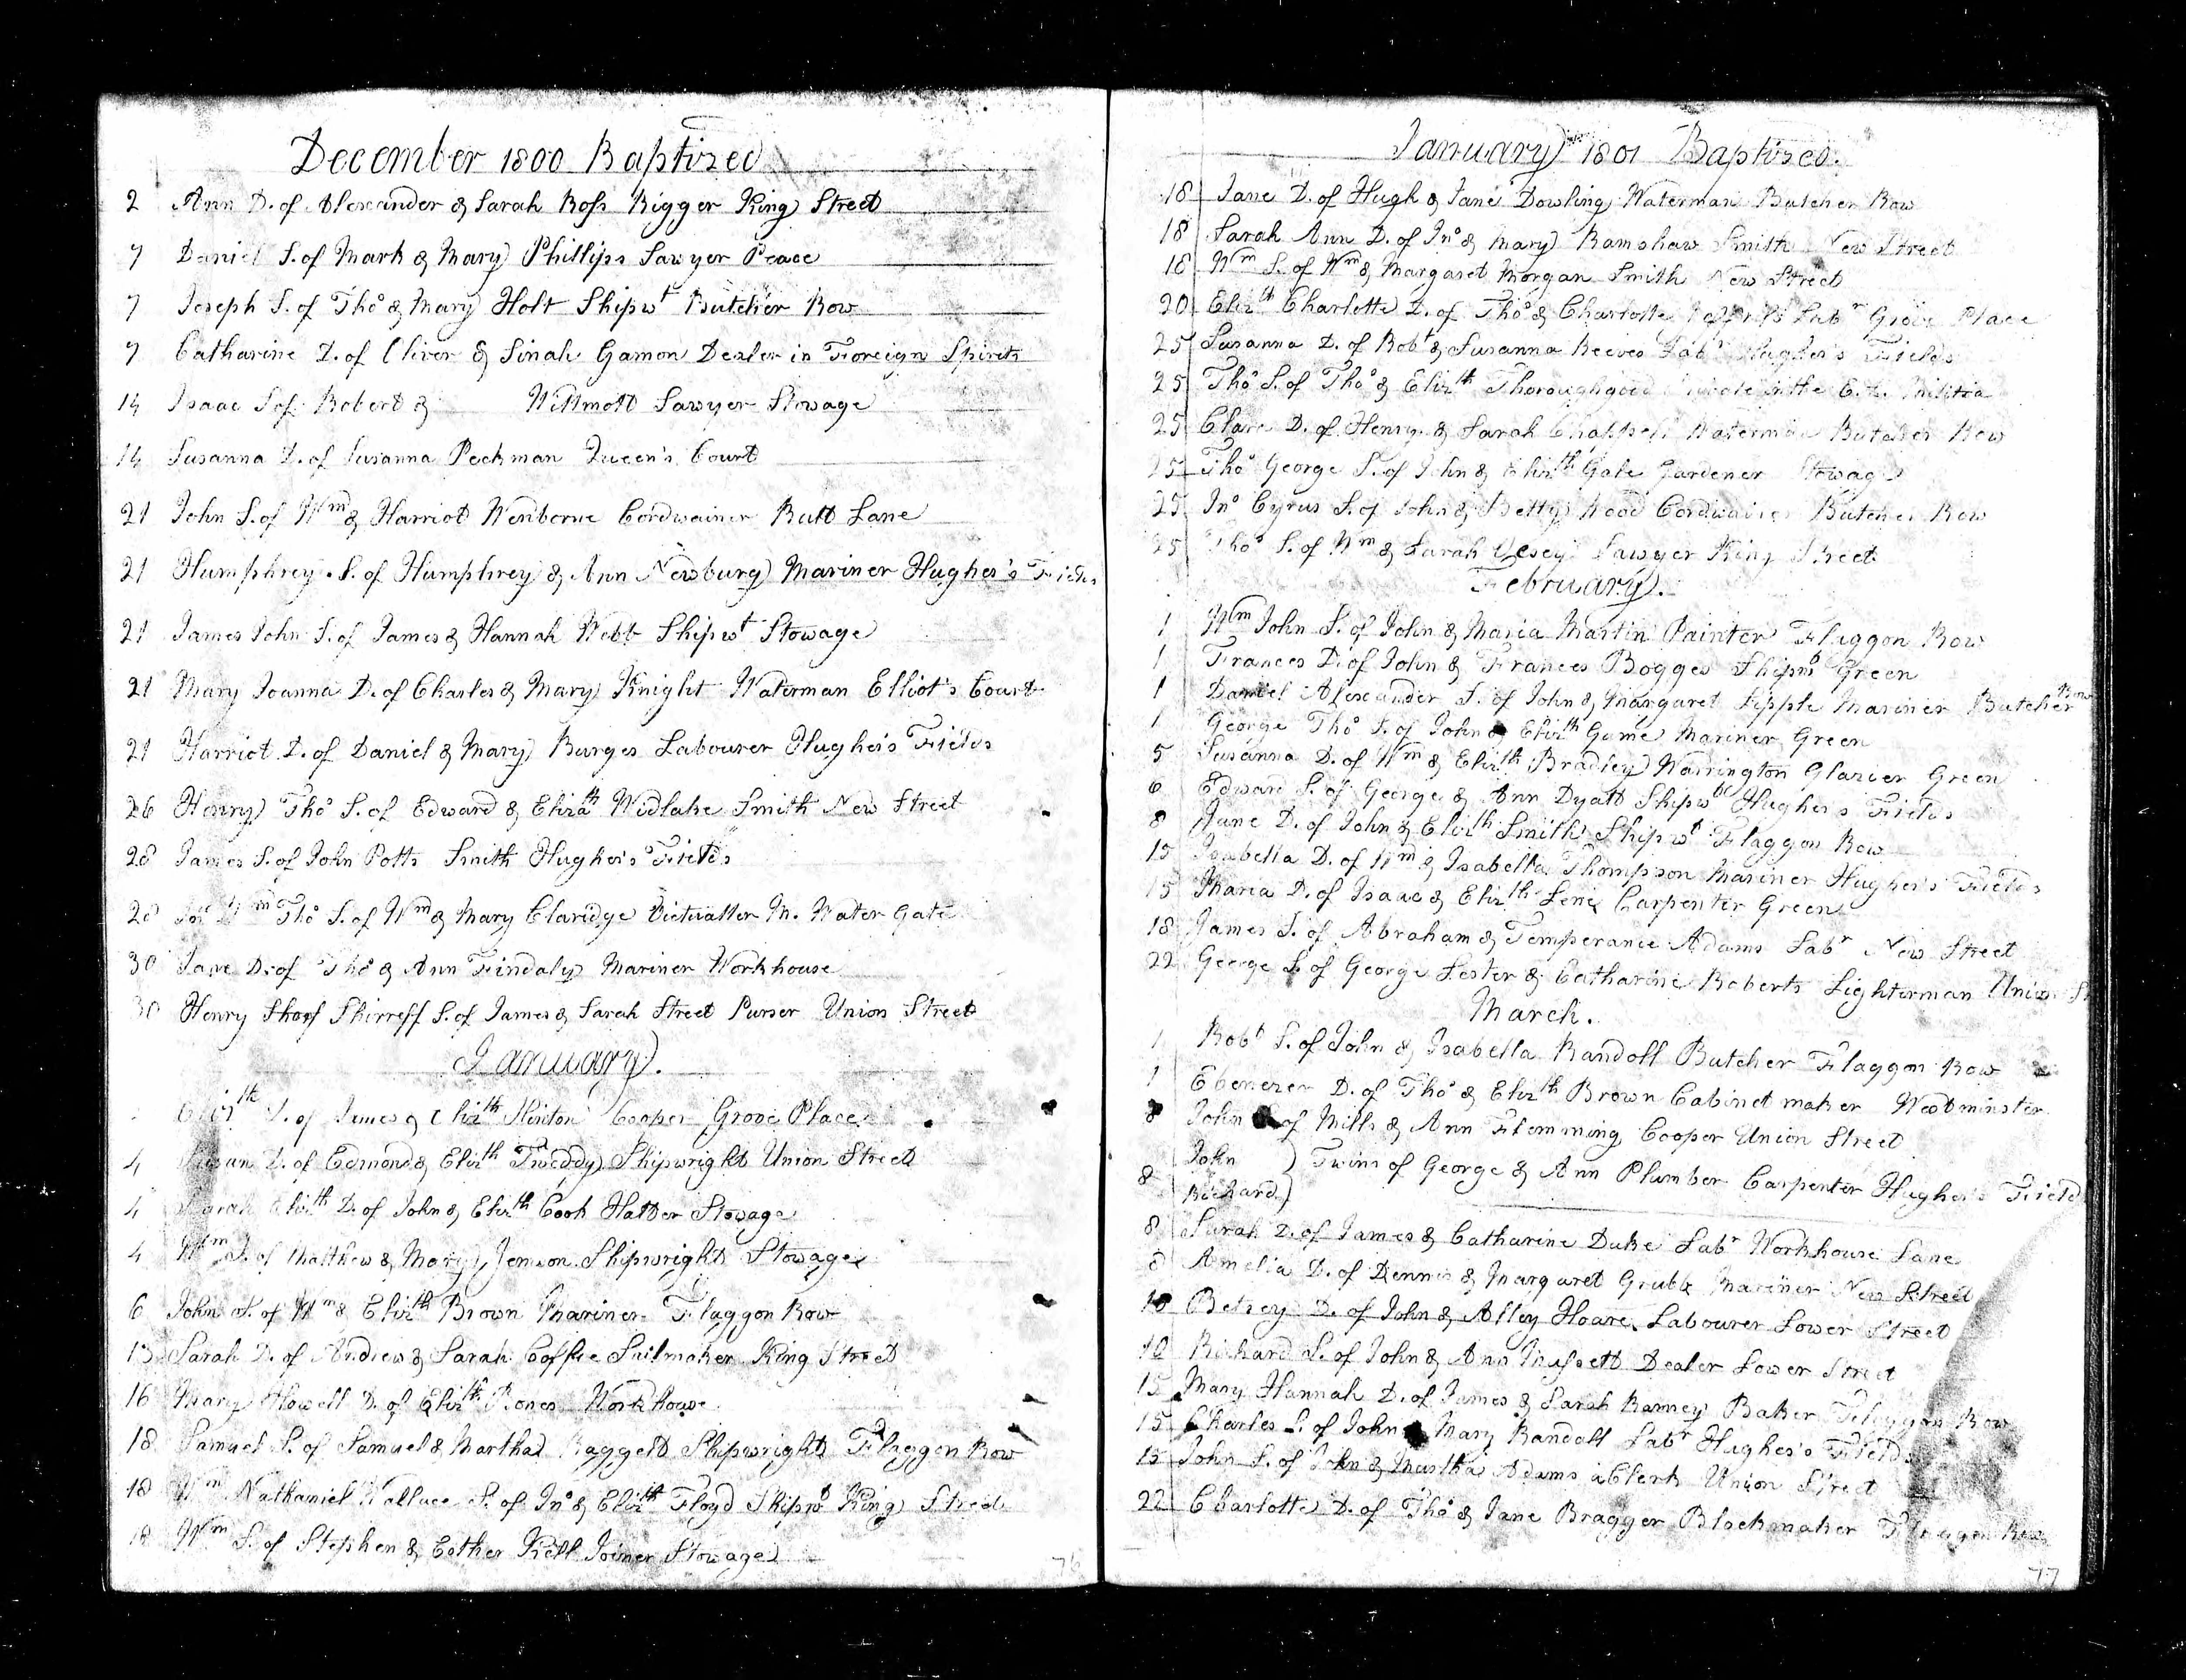 December 1800 Baptized
2 Ann D. of Alexander & Sarah Ross Rigger King Street
7 Daniel S. of Mark & Mary Phillips Sawyer Peace
7 Joseph S. of Tho° & Mary Holt Shipwt Butcher Row
7 Catharine D. of Oliver & Sinah Gamon Dealer in Foreign Spirits
14 Isaac S of Robert & Willmott Sawyer Stowage
14 Susanna D. of Susanna Peckman Queen's Court
21 John S. of Wm & Harriot Wenborne Cordwainer Butt Lane
21 Humphrey S. of Humphrey & Ann Newburg Mariner Hughes's Fields
21 James John S. of James & Hannah Webb Shipwt Stowage
21 Mary Joanna D. of Charles & Mary Knight Waterman Elliot's Court
21 Harriot D. of Daniel & Mary Burges Labourer Hughes's Fields
26 Henry Tho° S. of Edward & Elizath Widlake Smith New Street
28 James S. of John Potts Smith Hughes's Fields
28 Wm Tho° S. of Wm & Mary Claridge Victualler M. Water Gate
30 Jane D. of Tho° & Ann Findaly Mariner Workhouse
30 Henry Shirreff S. of James & Sarah Street Purser Union Street
January.
Elizth of James & Elizth Hinton Cooper Grove Place
4 Susan D. of Edmond & Elizth Tweddy Shipwright Union Street
4 Sarah Elizth D. of John & Elizth Cook Hatter Stowage
4 Wm S. of Matthew & Mary Jemson Shipwright Stowage
6 John S. of Wm & Elizth Brown Mariner Flaggon Row
13 Sarah D. of Andrew & Sarah Coffie Sailmaker King Street
16 Mary Howell D. of Elizth Jones Workhouse
18 Samuel S. of Samuel & Martha Baggett Shipwright Flaggon Row
18 Wm Nathaniel Wallace S. of Jn° & Elizth Floyd Shipwt King Street
18 Wm S. of Stephen & Esther Kell Joiner Stowage
76
January 1801 Baptized.
18 Jane D. of Hugh & Jane Dowling Waterman Butcher Row
18 Sarah Ann D. of Jn° & Mary Ramshaw Smith New Street
18 Wm S. of Wm & Margaret Morgan Smith New Street
20 Elizth Charlotte D. of Tho° & Charlotte Labr Grove Place
25 Susanna D. of Robt & Susanna Reeves Labr Hughes's Fields
25 Tho° S. of Tho° & Elizth Thoroughgood in the E. Militia
25 Clare D. of Henry & Sarah Chappell Waterman Butcher Row
25 Tho° George S. of John & Elizth Gale Gardener Stowage
25 Jn° Cyrus S. of John & Betty Wood Cordwainer Butcher Row
25 Tho° S. of Wm & Sarah Vesey Sawyer King Street
February.
1 Wm John S. of John & Maria Martin Painter Flaggon Row
1 Frances D. of John & Frances Bogges Shipwt Green
1 Daniel Alexander S. of John & Margaret Sipple Mariner Butcher Row
1 George Tho° S. of John & Elizth Game Mariner Green
5 Susanna D. of Wm & Elizth Bradley Warrington Glazier Green
6 Edward S. of George & Ann Dyatt Shipwt Hughes's Fields
8 Jane D. of John & Elizth Smith Shipwt Flaggon Row
15 Isabella D. of Wm & Isabella Thompson Mariner Hughes's Fields
15 Maria D. of Isaac & Elizth Carpenter Green
18 James S. of Abraham & Temperance Adams Labr New Street
22 George S. of George Lester & Catharine Roberts Lighterman Union St
March.
1 Robt S. of John & Isabella Randoll Butcher Flaggon Row
1 Ebenezer D. of Tho° & Elizth Brown Cabinet maker Westminster
8 John of Mills & Ann Flemming Cooper Union Street
8 John Richard } Twins of George & Ann Plumber Carpenter Hughes's Field
8 Sarah D. of James & Catharine Duke Labr Workhouse Lane
8 Amelia D. of Dennis & Margaret Grubb Mariner New Street
10 Betsey D. of John & Alley Hoare Labourer Lower Street
10 Richard S. of John & Ann Mussett Dealer Lower Street
15 Mary Hannah D. of James & Sarah Ramsey Baker Flaggon Row
15 Charles S. of John Mary Randall Labr Hughes's Fields
15 John S. of John & Martha Adams a Clerk Union Street
22 Charlotte D. of Tho° & Jane Bragger Blockmaker Flaggon Row
77